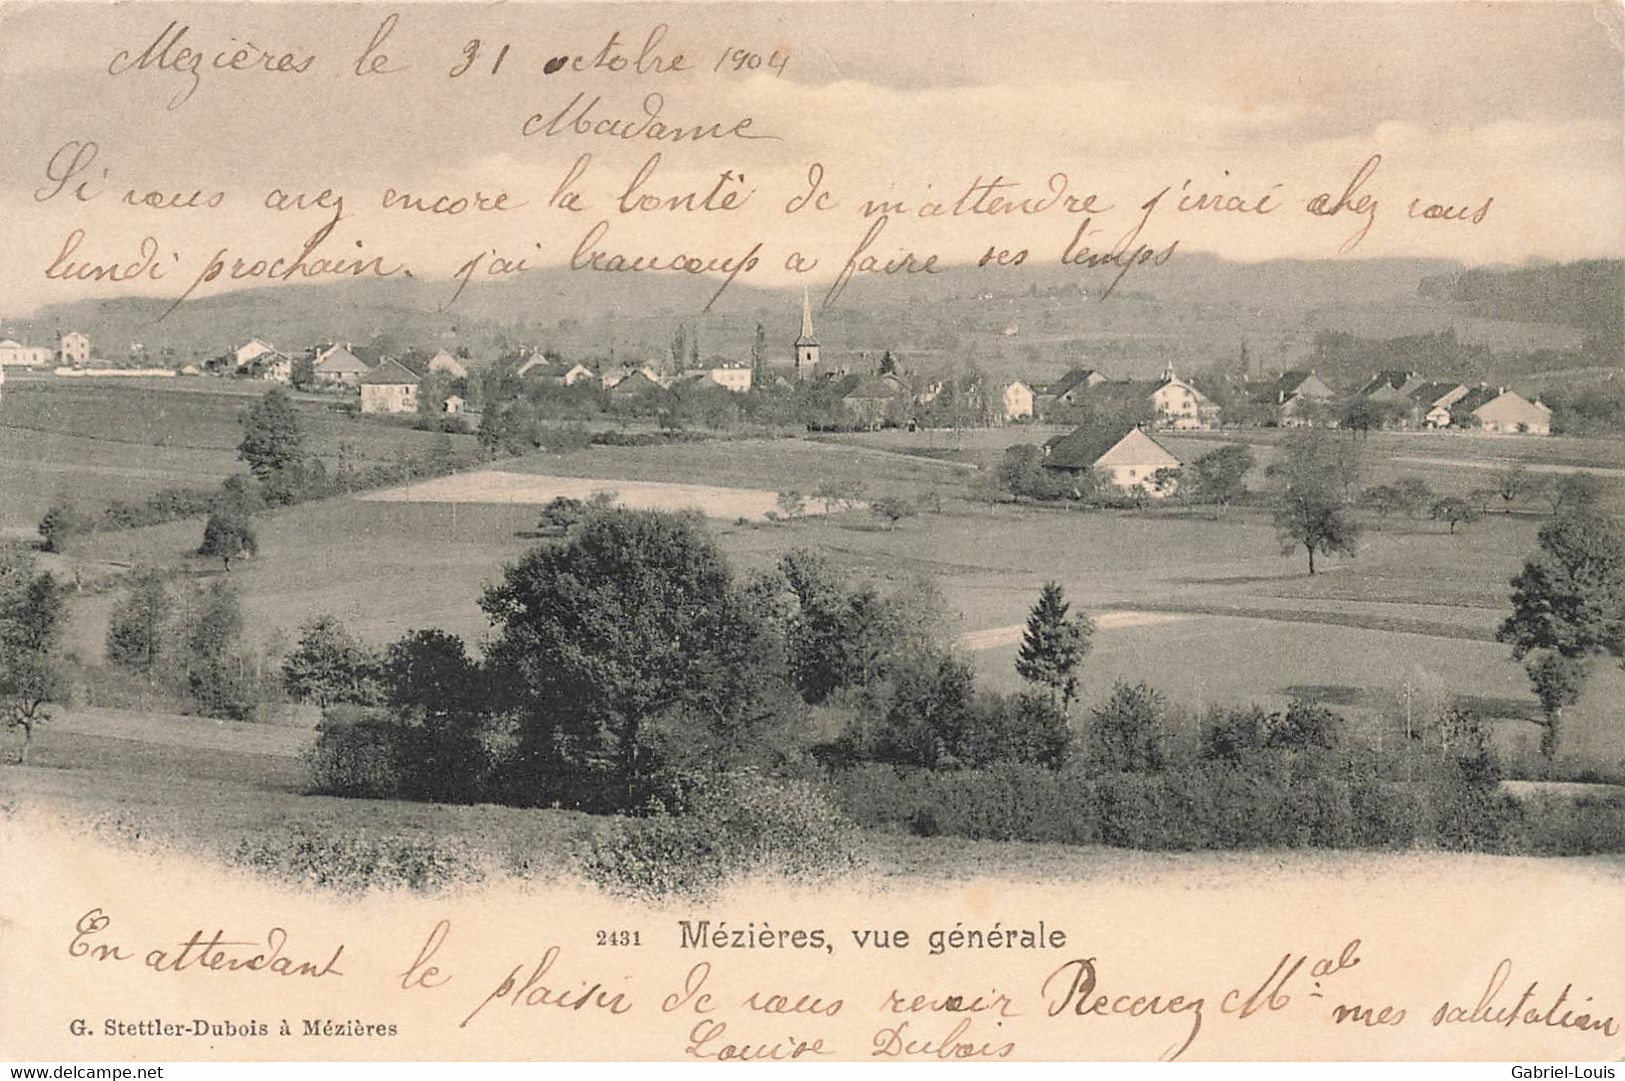 Mezières le 31 octobre 1904
Madame
Si vous avez encore la bonté de m'attendre j'irrai chez vous
lundi prochain. j'ai beaucoup a faire ses temps
2431 Mézières, vue générale
En attendant le plaisir de vous revoir Recevez Mal mes salutation
G. Stettler-Dubois à Mézières
Louise Dubois
www.delcampe.net
Gabriel-Louis